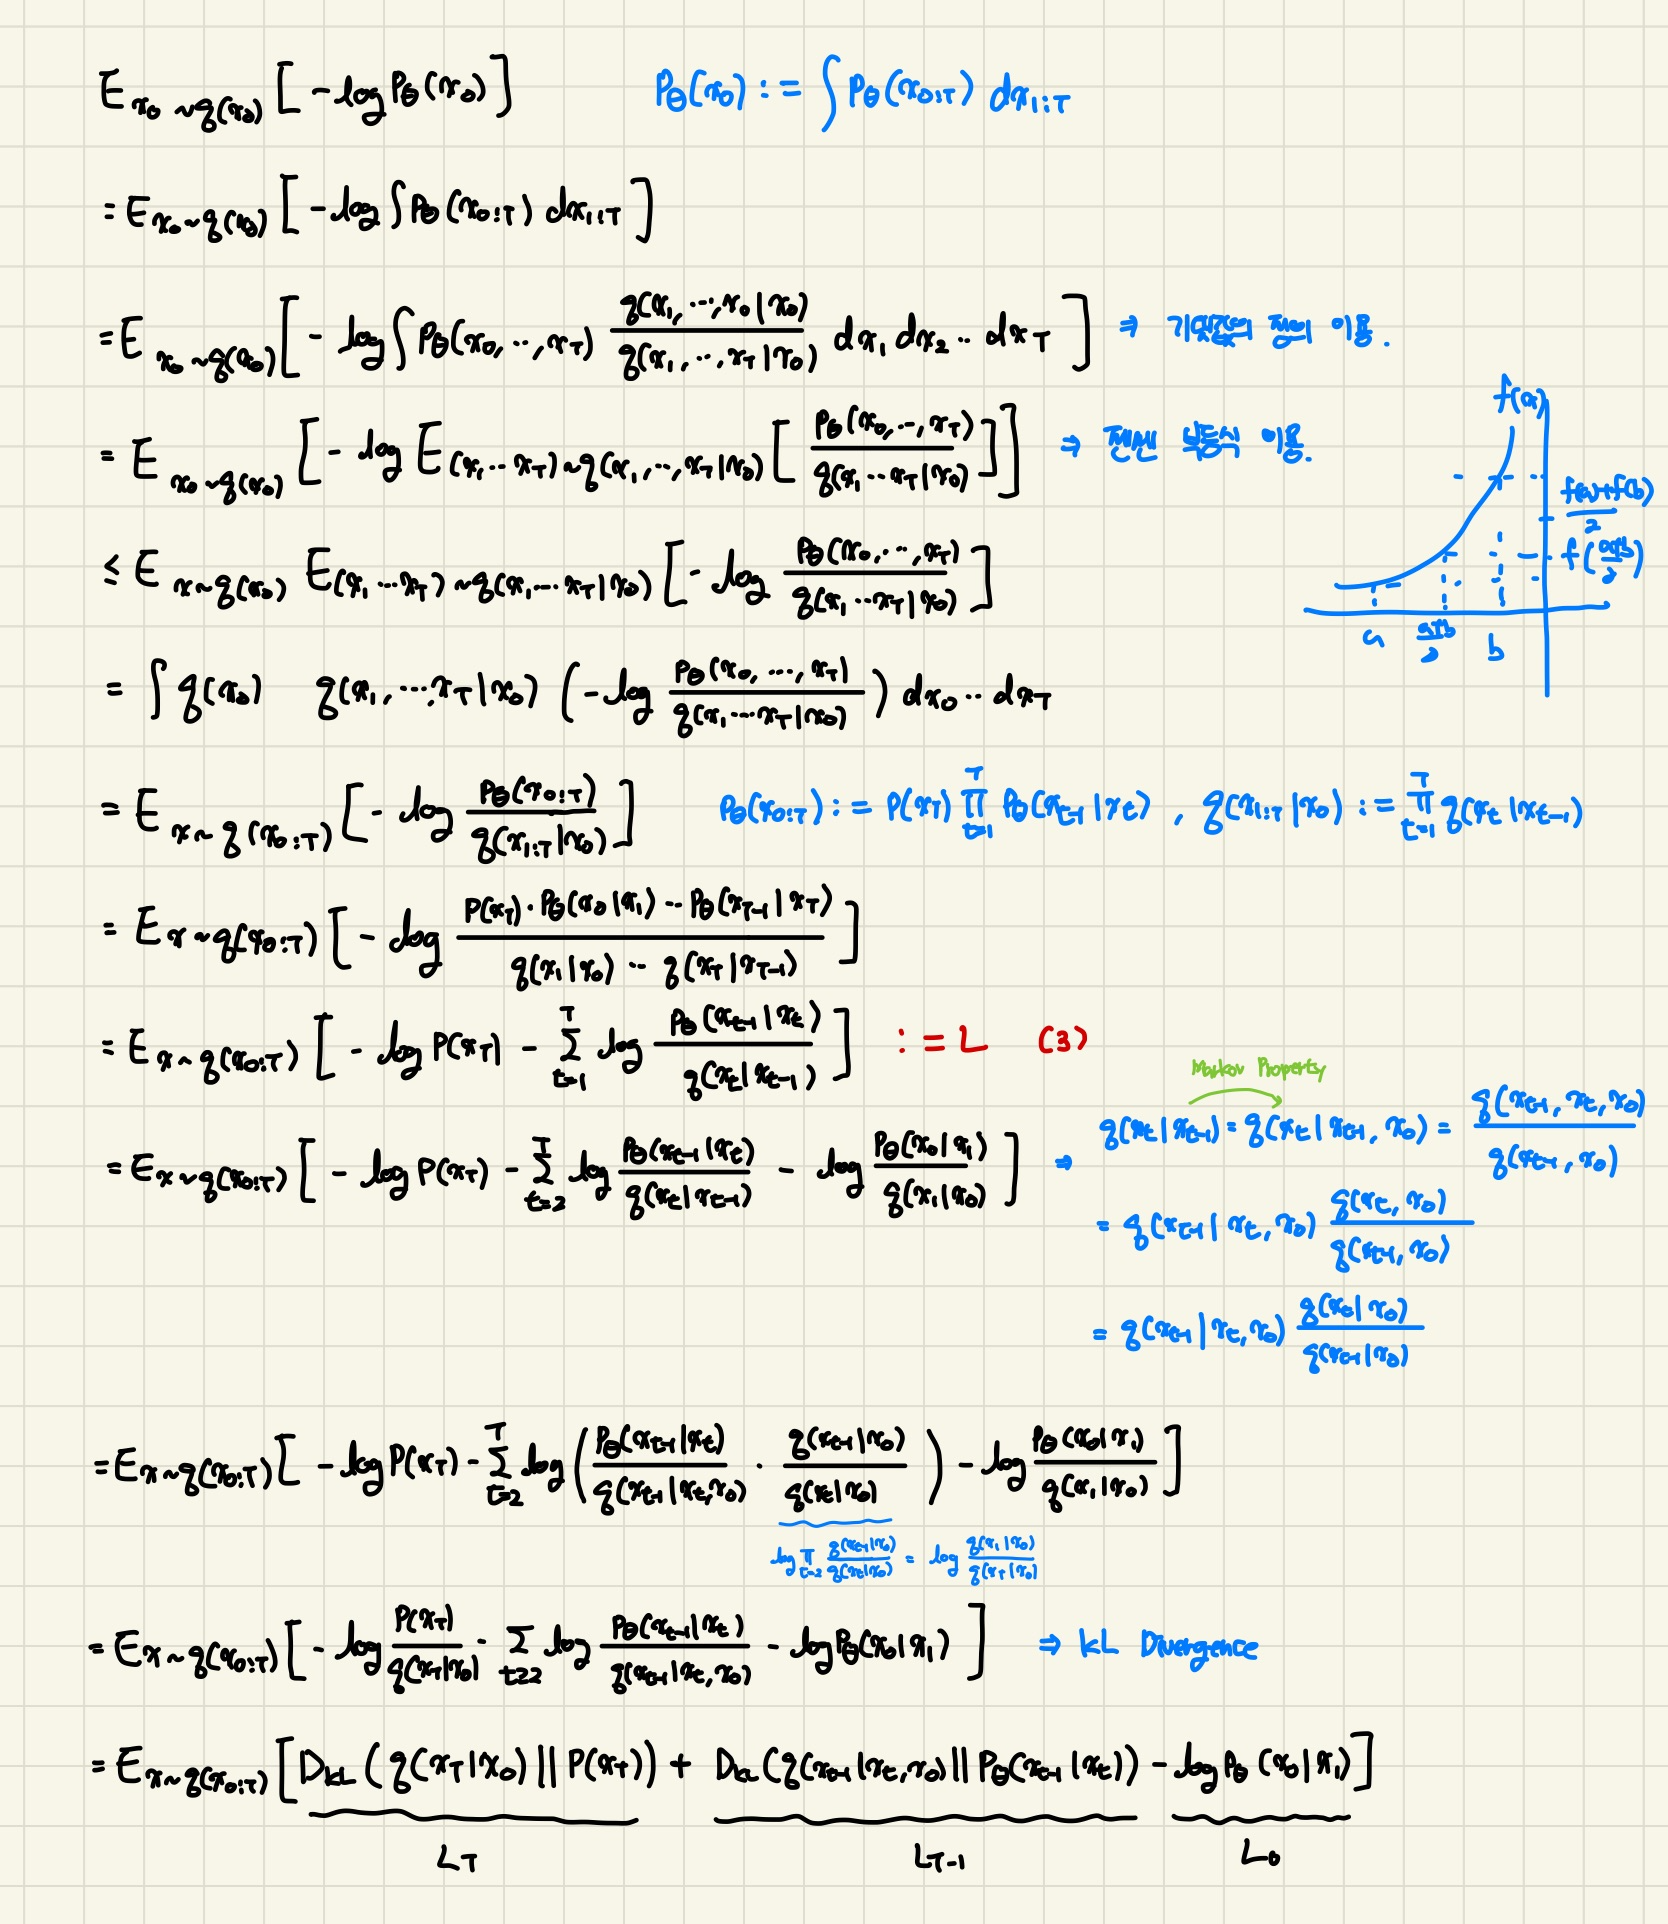 E_{x_0 ~ q(x_0)} [ -log P_θ(x_0) ]    P_θ(x_0) := ∫ P_θ(x_{0:T}) dx_{1:T}
= E_{x_0 ~ q(x_0)} [ -log ∫ P_θ(x_{0:T}) dx_{1:T} ]
= E_{x_0 ~ q(x_0)} [ - log ∫ P_θ(x_0, ⋯, x_T) \frac{q(x_1, ⋯, x_0 | x_0)}{q(x_1, ⋯, x_T | x_0)} dx_1 dx_2 ⋯ dx_T ] ⇒ 기댓값의 정의 이용.
= E_{x_0 ~ q(x_0)} [ - log E_{(x_1 ⋯ x_T) ~ q(x_1, ⋯, x_T | x_0)} [ \frac{P_θ(x_0, ⋯, x_T)}{q(x_1 ⋯ x_T | x_0)} ] ] ⇒ 젠센 부등식 이용.
f(x)
\frac{f(a)+f(b)}{2}
f(\frac{a+b}{2})
a  \frac{a+b}{2}  b
≤ E_{x ~ q(x_0)} E_{(x_1 ⋯ x_T) ~ q(x_1 ⋯ x_T | x_0)} [ - log \frac{P_θ(x_0, ⋯, x_T)}{q(x_1 ⋯ x_T | x_0)} ]
= ∫ q(x_0) q(x_1, ⋯, x_T | x_0) ( -log \frac{P_θ(x_0, ⋯, x_T)}{q(x_1 ⋯ x_T | x_0)} ) dx_0 ⋯ dx_T
= E_{x ~ q(x_{0:T})} [ - log \frac{P_θ(x_{0:T})}{q(x_{1:T} | x_0)} ]    P_θ(x_{0:T}) := P(x_T) ∏_{t=1}^{T} P_θ(x_{t-1} | x_t) , q(x_{1:T} | x_0) := ∏_{t=1}^{T} q(x_t | x_{t-1})
= E_{x ~ q(x_{0:T})} [ - log \frac{P(x_T) · P_θ(x_0 | x_1) ⋯ P_θ(x_{T-1} | x_T)}{q(x_1 | x_0) ⋯ q(x_T | x_{T-1})} ]
= E_{x ~ q(x_{0:T})} [ - log P(x_T) - ∑_{t=1}^{T} log \frac{P_θ(x_{t-1} | x_t)}{q(x_t | x_{t-1})} ] := L (3)
= E_{x ~ q(x_{0:T})} [ - log P(x_T) - ∑_{t=2}^{T} log \frac{P_θ(x_{t-1} | x_t)}{q(x_t | x_{t-1})} - log \frac{P_θ(x_0 | x_1)}{q(x_1 | x_0)} ] ⇒
Markov Property
q(x_t | x_{t-1}) = q(x_t | x_{t-1}, x_0) = \frac{q(x_{t-1}, x_t, x_0)}{q(x_{t-1}, x_0)}
= q(x_{t-1} | x_t, x_0) \frac{q(x_t, x_0)}{q(x_{t-1}, x_0)}
= q(x_{t-1} | x_t, x_0) \frac{q(x_t | x_0)}{q(x_{t-1} | x_0)}
= E_{x ~ q(x_{0:T})} [ - log P(x_T) - ∑_{t=2}^{T} log ( \frac{P_θ(x_{t-1} | x_t)}{q(x_{t-1} | x_t, x_0)} · \frac{q(x_{t-1} | x_0)}{q(x_t | x_0)} ) - log \frac{P_θ(x_0 | x_1)}{q(x_1 | x_0)} ]
log ∏_{t=2} \frac{q(x_{t-1} | x_0)}{q(x_t | x_0)} = log \frac{q(x_1 | x_0)}{q(x_T | x_0)}
= E_{x ~ q(x_{0:T})} [ - log \frac{P(x_T)}{q(x_T | x_0)} - ∑_{t≥2} log \frac{P_θ(x_{t-1} | x_t)}{q(x_{t-1} | x_t, x_0)} - log P_θ(x_0 | x_1) ] ⇒ KL Divergence
= E_{x ~ q(x_{0:T})} [ D_{KL} ( q(x_T | x_0) || P(x_T) ) + D_{KL} ( q(x_{t-1} | x_t, x_0) || P_θ(x_{t-1} | x_t) ) - log P_θ (x_0 | x_1) ]
L_T  L_{T-1}  L_0